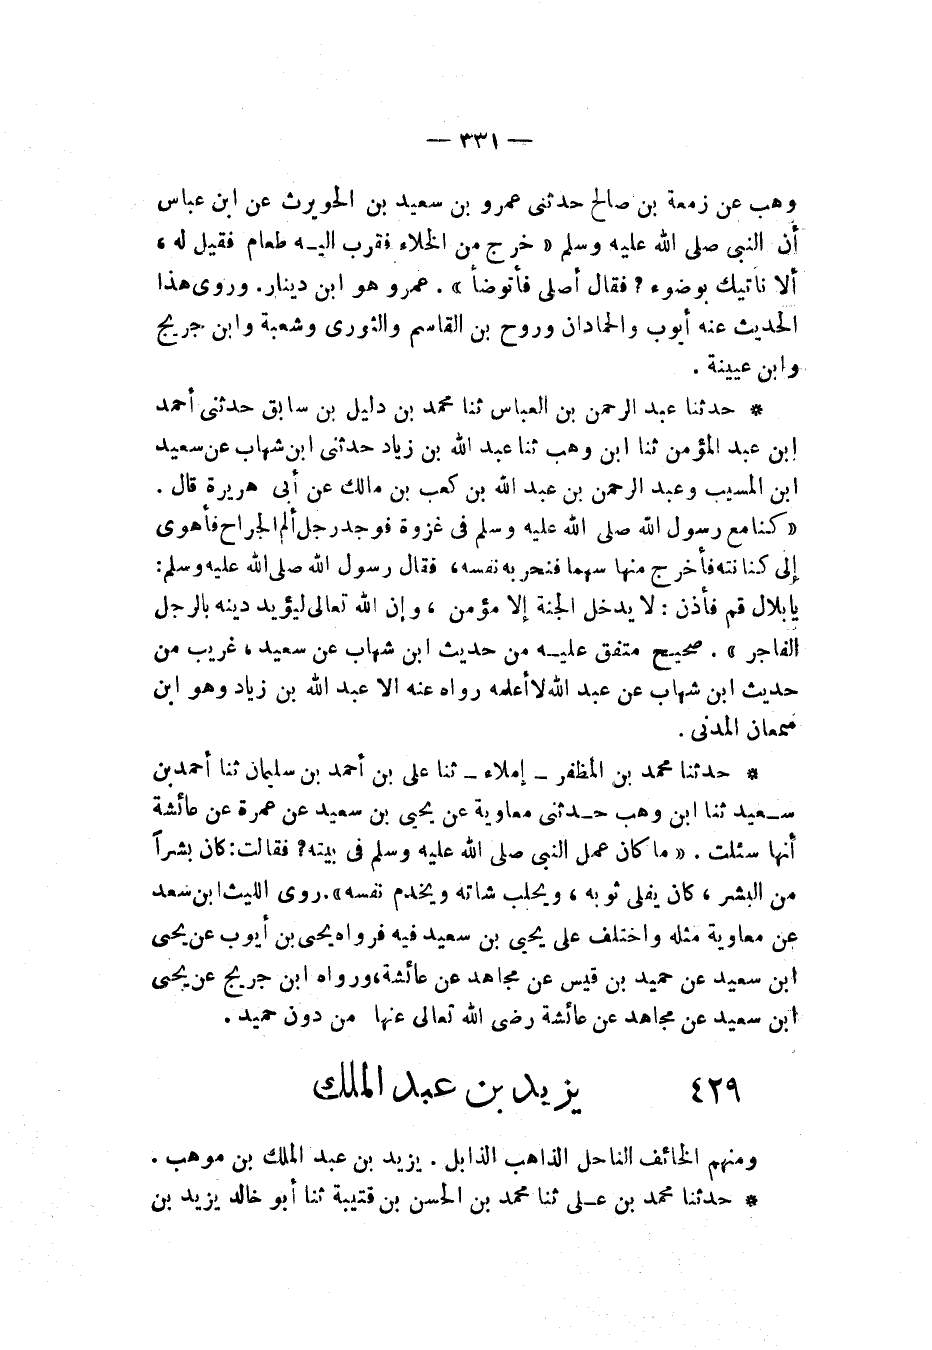 — ٣٣١ —
وهب عن زمعة بن صالح حدثنى عمرو بن سعيد بن الحويرث عن ابن عباس
أن النبى صلى الله عليه وسلم « خرج من الخلاء فقرب اليـه طعام فقيل له ،
ألا نأتيك بوضوء ؟ فقال أصلى فأتوضأ » . عمرو هو ابن دينار. وروى هذا
الحديث عنه أيوب والحمادان وروح بن القاسم والثورى وشعبة وابن جريج
وابن عيينة .
* حدثنا عبد الرحمن بن العباس ثنا محمد بن دليل بن سابق حدثنى أحمد
ابن عبد المؤمن ثنا ابن وهب ثنا عبد الله بن زياد حدثنى ابن شهاب عن سعيد
ابن المسيب وعبد الرحمن بن عبد الله بن كعب بن مالك عن أبى هريرة قال .
« كنا مع رسول الله صلى الله عليه وسلم فى غزوة فوجد رجل ألم الجراح فأهوى
إلى كنانته فأخرج منها سهما فنحر به نفسه، فقال رسول الله صلى الله عليه وسلم:
يا بلال قم فأذن : لا يدخل الجنة إلا مؤمن ، وإن الله تعالى ليؤيد دينه بالرجل
الفاجر » . صحيـح متفق عليـه من حديث ابن شهاب عن سعيد ، غريب من
حديث ابن شهاب عن عبد الله لا أعلمه رواه عنه الا عبد الله بن زياد وهو ابن
سمعان المدنى .
* حدثنا محمد بن المظفر ـ إملاء ـ ثنا على بن أحمد بن سليمان ثنا أحمد بن
سـعيد ثنا ابن وهب حـدثنى معاوية عن يحيى بن سعيد عن عمرة عن عائشة
أنها سئلت . « ما كان عمل النبى صلى الله عليه وسلم فى بيته؟ فقالت: كان بشراً
من البشر ، كان يفلى ثوبه ، ويحلب شاته ويخدم نفسه». روى الليث ابن سعد
عن معاوية مثله واختلف على يحيى بن سعيد فيه فرواه يحيى بن أيوب عن يحيى
ابن سعيد عن حميد بن قيس عن مجاهد عن عائشة، ورواه ابن جريج عن يحيى
ابن سعيد عن مجاهد عن عائشة رضى الله تعالى عنها من دون حميد .
٤٢٩ يزيد بن عبد الملك
ومنهم الخائف الناحل الذاهب الذابل . يزيد بن عبد الملك بن موهب .
* حدثنا محمد بن عـلى ثنا محمد بن الحسن بن قتيبة ثنا أبو خالد يزيد بن